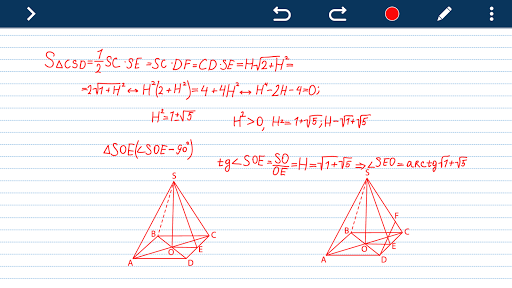 S△CSD=1/2 SC·SE=SC·DF=CD·SE=H√2+H²=
=2√1+H² ↔ H²(2+H²)=4+4H² ↔ H⁴-2H-4=0;
H²=1±√5 H²>0, H²=1+√5; H-√1+√5
△SOE(∠SOE-90°)
tg∠SOE=SO/OE=H=√1+√5 ⇒ ∠SEO=arctg√1+√5
S
B
C
O
E
A
D
S
F
B
C
O
E
A
D